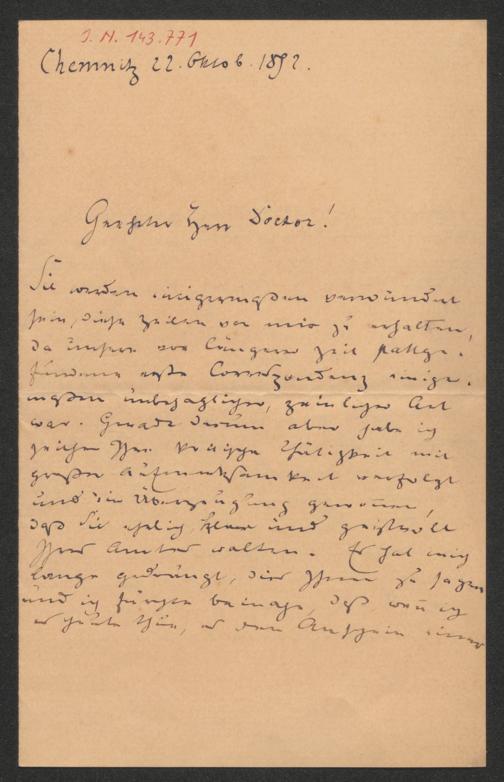 I. N. 143.771
Chemnitz 22. Oktob. 1892.
Geehrter Herr Doctor!
Sie werden einigermaßen verwundert
sein, diese Zeilen von mir zu erhalten,
da unsere vor längerer Zeit stattge-
fundene erste Correspondenz einiger-
maßen unbehaglicher, peinlicher Art
war. Gerade darum aber habe ich
seither Ihre kritische Thätigkeit mit
großer Aufmerksamkeit verfolgt
und die Überzeugung gewonnen,
daß Sie ehrlich, klar und geistvoll
Ihres Amtes walten. Es hat mich
lange gedrängt, dies Ihnen zu sagen
und ich fürchte beinahe, daß, wenn ich
es heute thue, es den Anschein einer